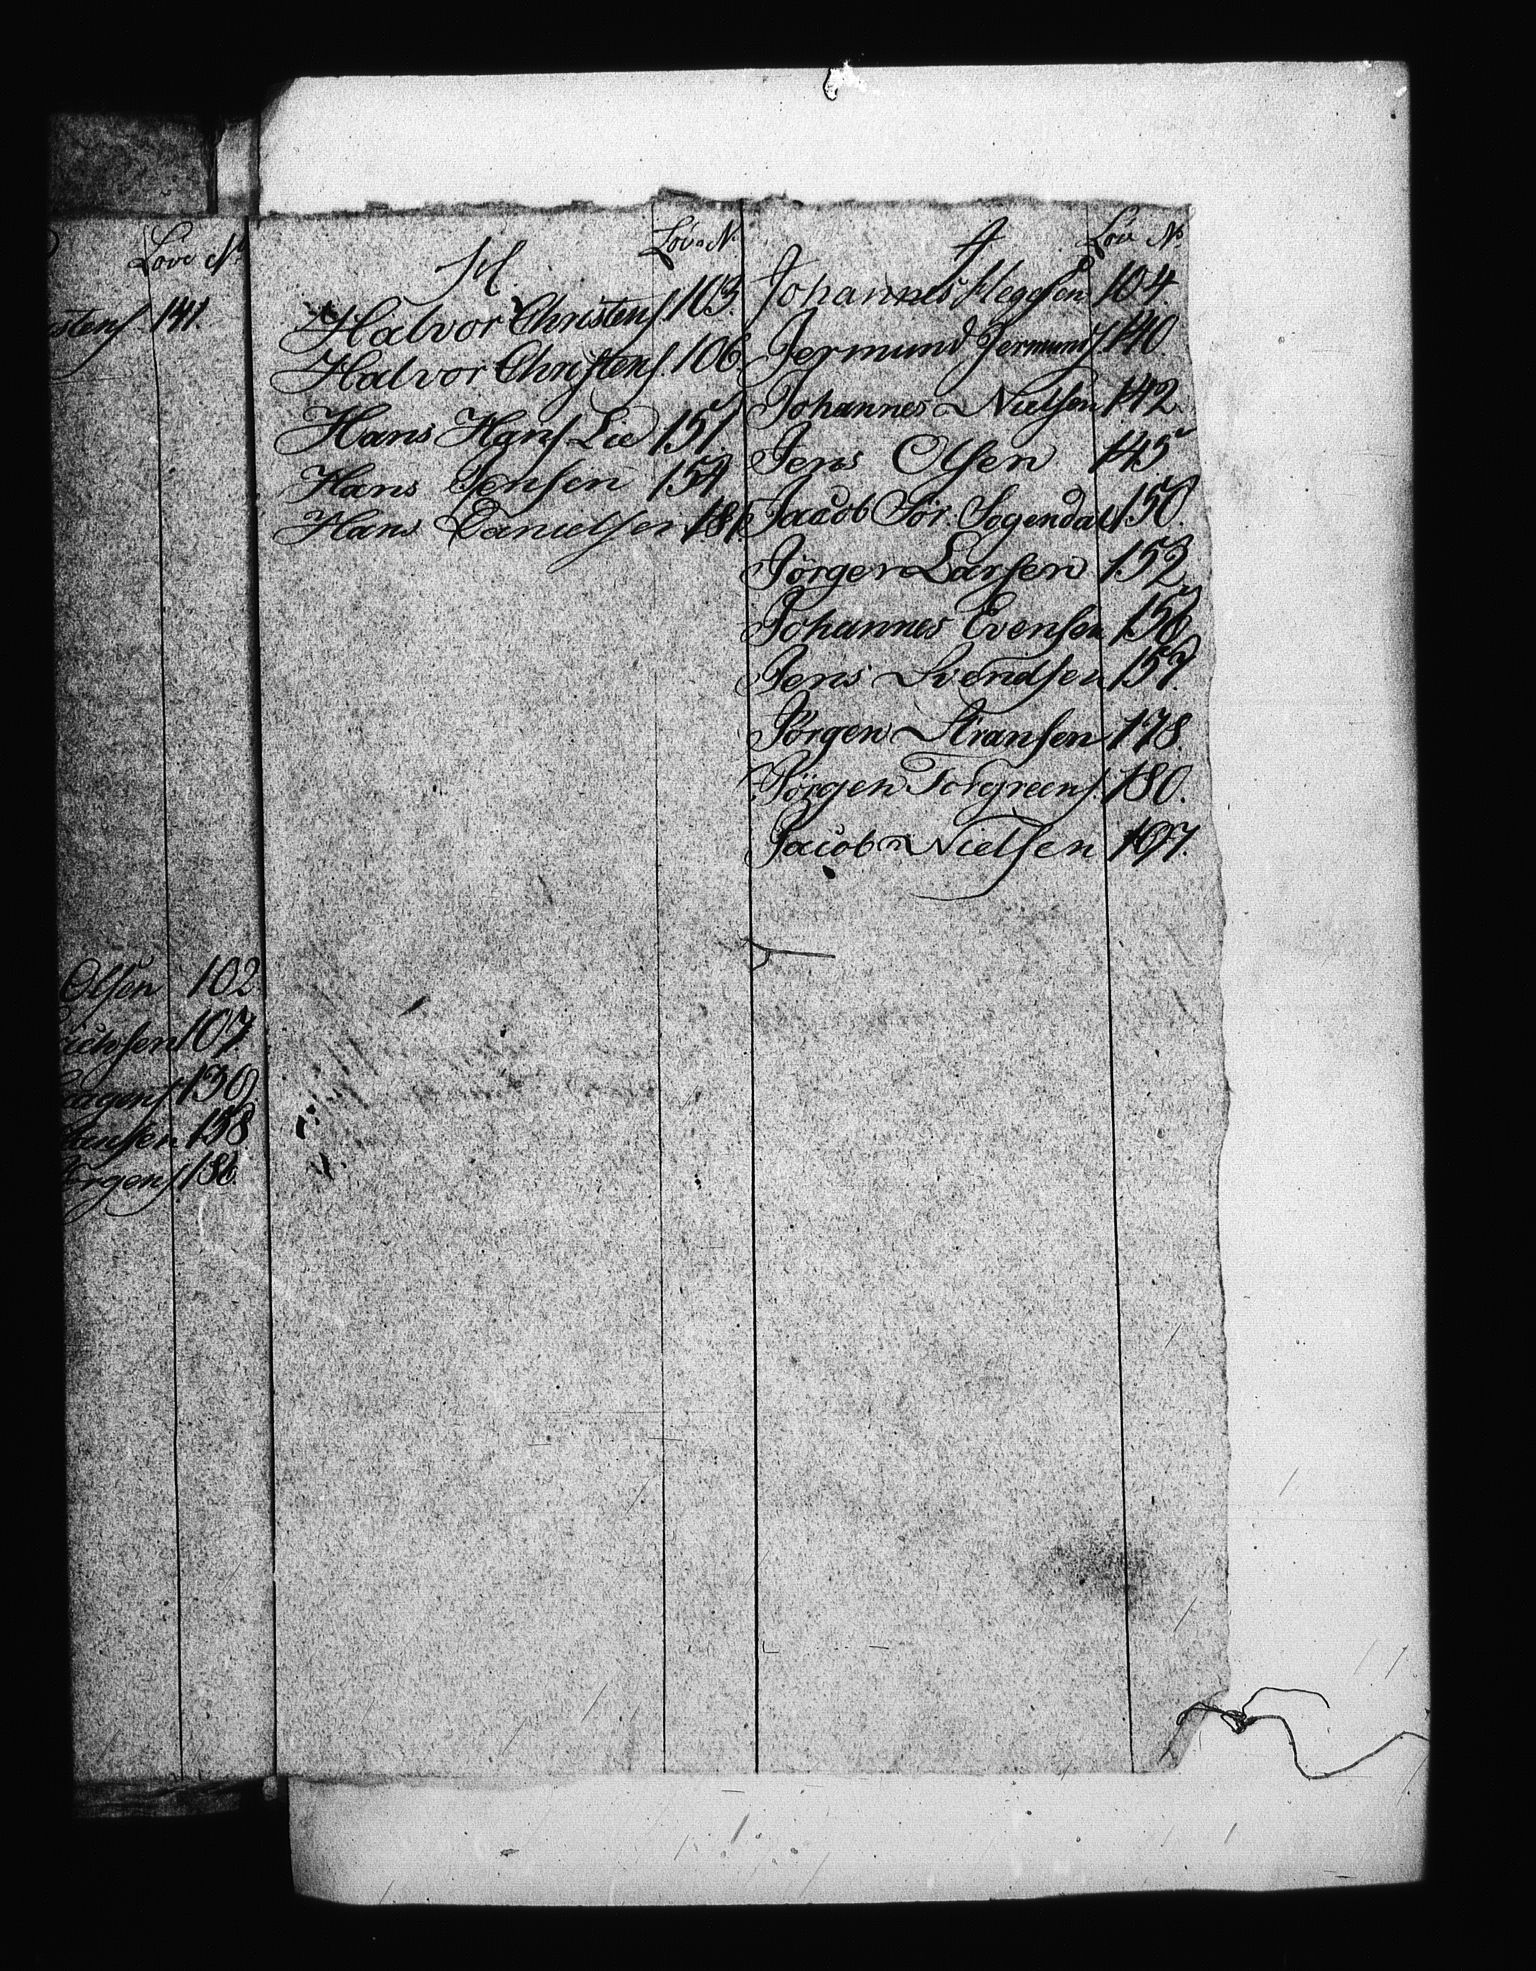 Løve N.
141.
Olsen 102
107
130
158
186.
H.
Løve N.
Halvor Christens. 103.
Halvor Christens. 106.
Hans Hans. Lie 151.
Hans Jensen 154
Hans Danielsen 181.
J
Løve No.
Johannes 104.
Jermund Jermunds. 140.
Johannes Nielsen 142.
Jens Olsen 145
Jacob Sør. Sogendal 150.
Jörgen Larsen 152
Johannes Evensen 156
Jens Svendsen 157.
Jörgen 178.
Jörgen Torgreens. 180.
Jacob Nielsen 197.